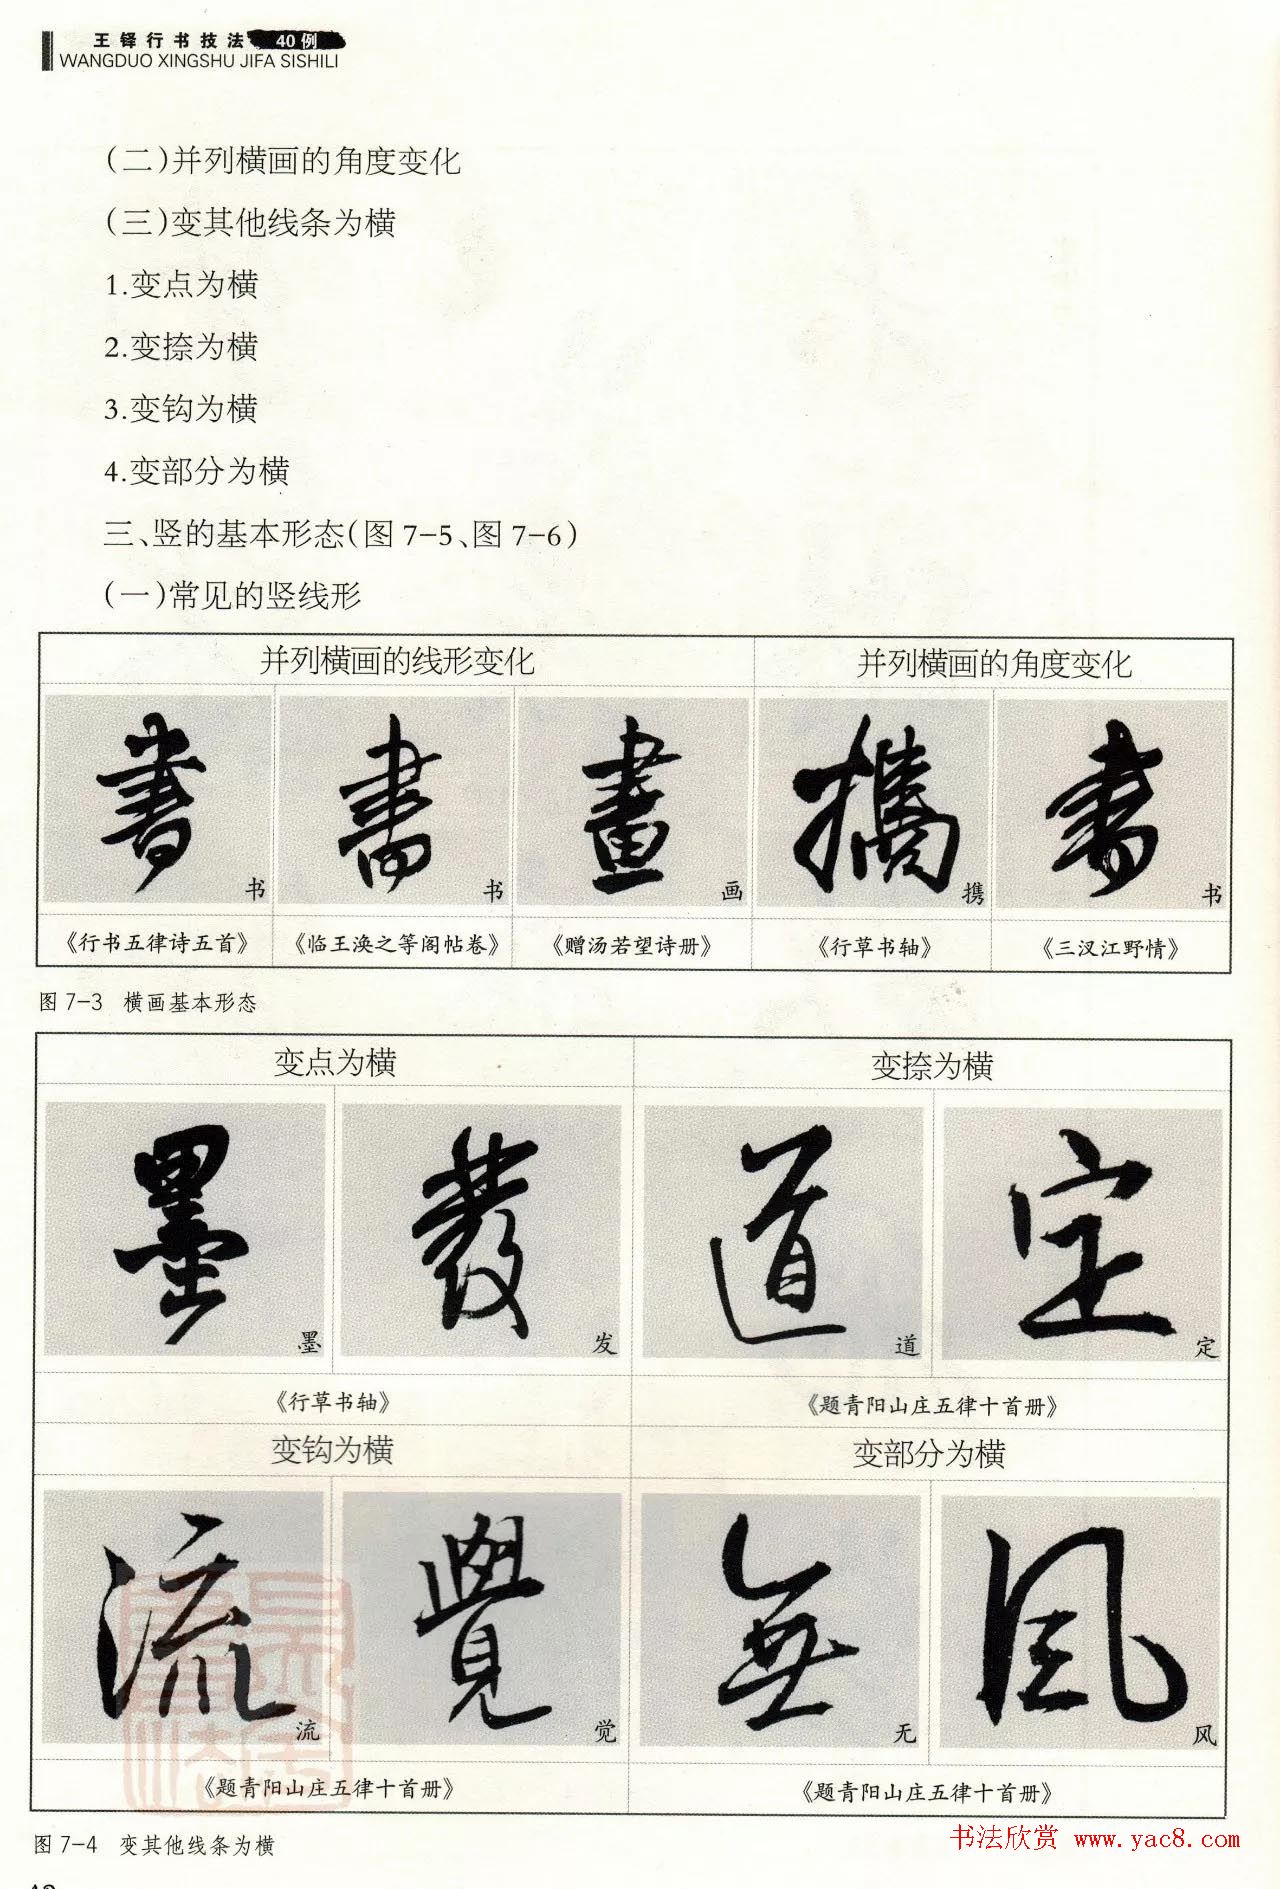 王铎行书技法 40例
WANGDUO XINGSHU JIFA SISHILI
(二)并列横画的角度变化
(三)变其他线条为横
1.变点为横
2.变捺为横
3.变钩为横
4.变部分为横
三、竖的基本形态(图 7-5、图 7-6)
(一)常见的竖线形
并列横画的线形变化 并列横画的角度变化
書 書 畫 攜 書
书 书 画 携 书
《行书五律诗五首》 《临王涣之等阁帖卷》 《赠汤若望诗册》 《行草书轴》 《三汊江野情》
图 7-3 横画基本形态
变点为横 变捺为横
墨 發 道 定
墨 发 道 定
《行草书轴》 《题青阳山庄五律十首册》
变钩为横 变部分为横
流 覺 無 風
流 觉 无 风
《题青阳山庄五律十首册》 《题青阳山庄五律十首册》
图 7-4 变其他线条为横
书法欣赏 www.yac8.com